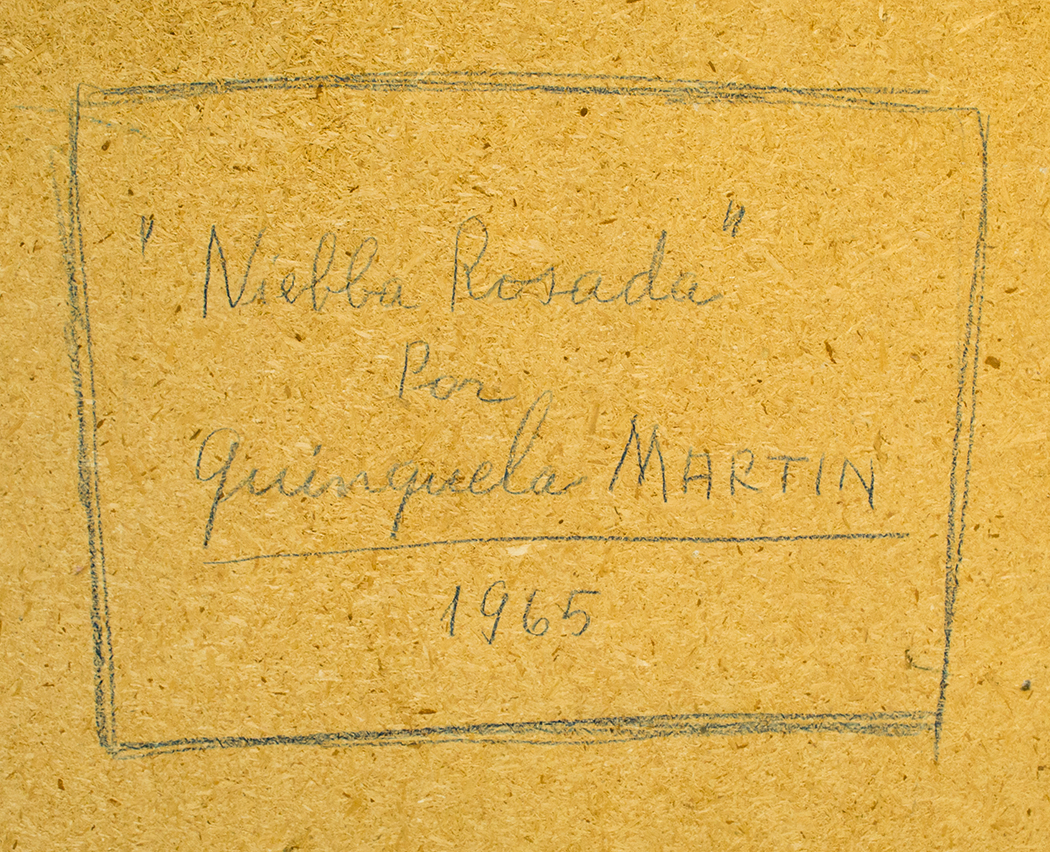 "Niebla Rosada"
Por
Quinquela MARTIN
1965